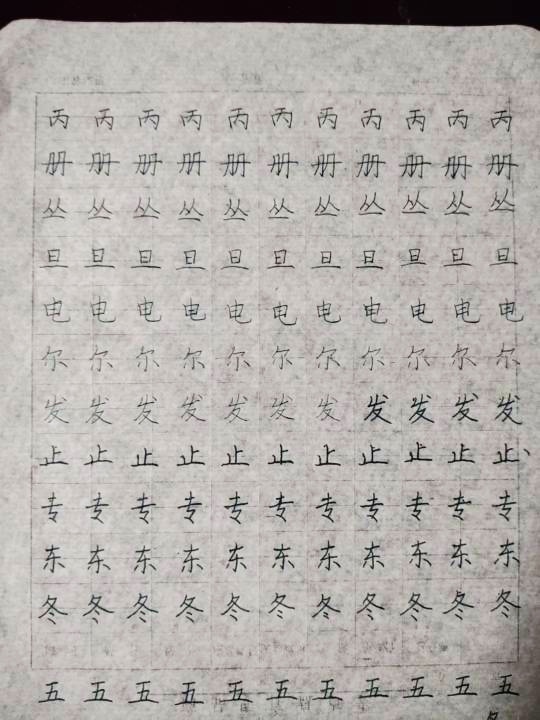 丙丙丙丙丙丙丙丙丙丙丙
册册册册册册册册册册册
丛丛丛丛丛丛丛丛丛丛丛
旦旦旦旦旦旦旦旦旦旦旦
电电电电电电电电电电电
尔尔尔尔尔尔尔尔尔尔尔
发发发发发发发发发发发
止止止止止止止止止止止
专专专专专专专专专专专
东东东东东东东东东东东
冬冬冬冬冬冬冬冬冬冬冬
五五五五五五五五五五五